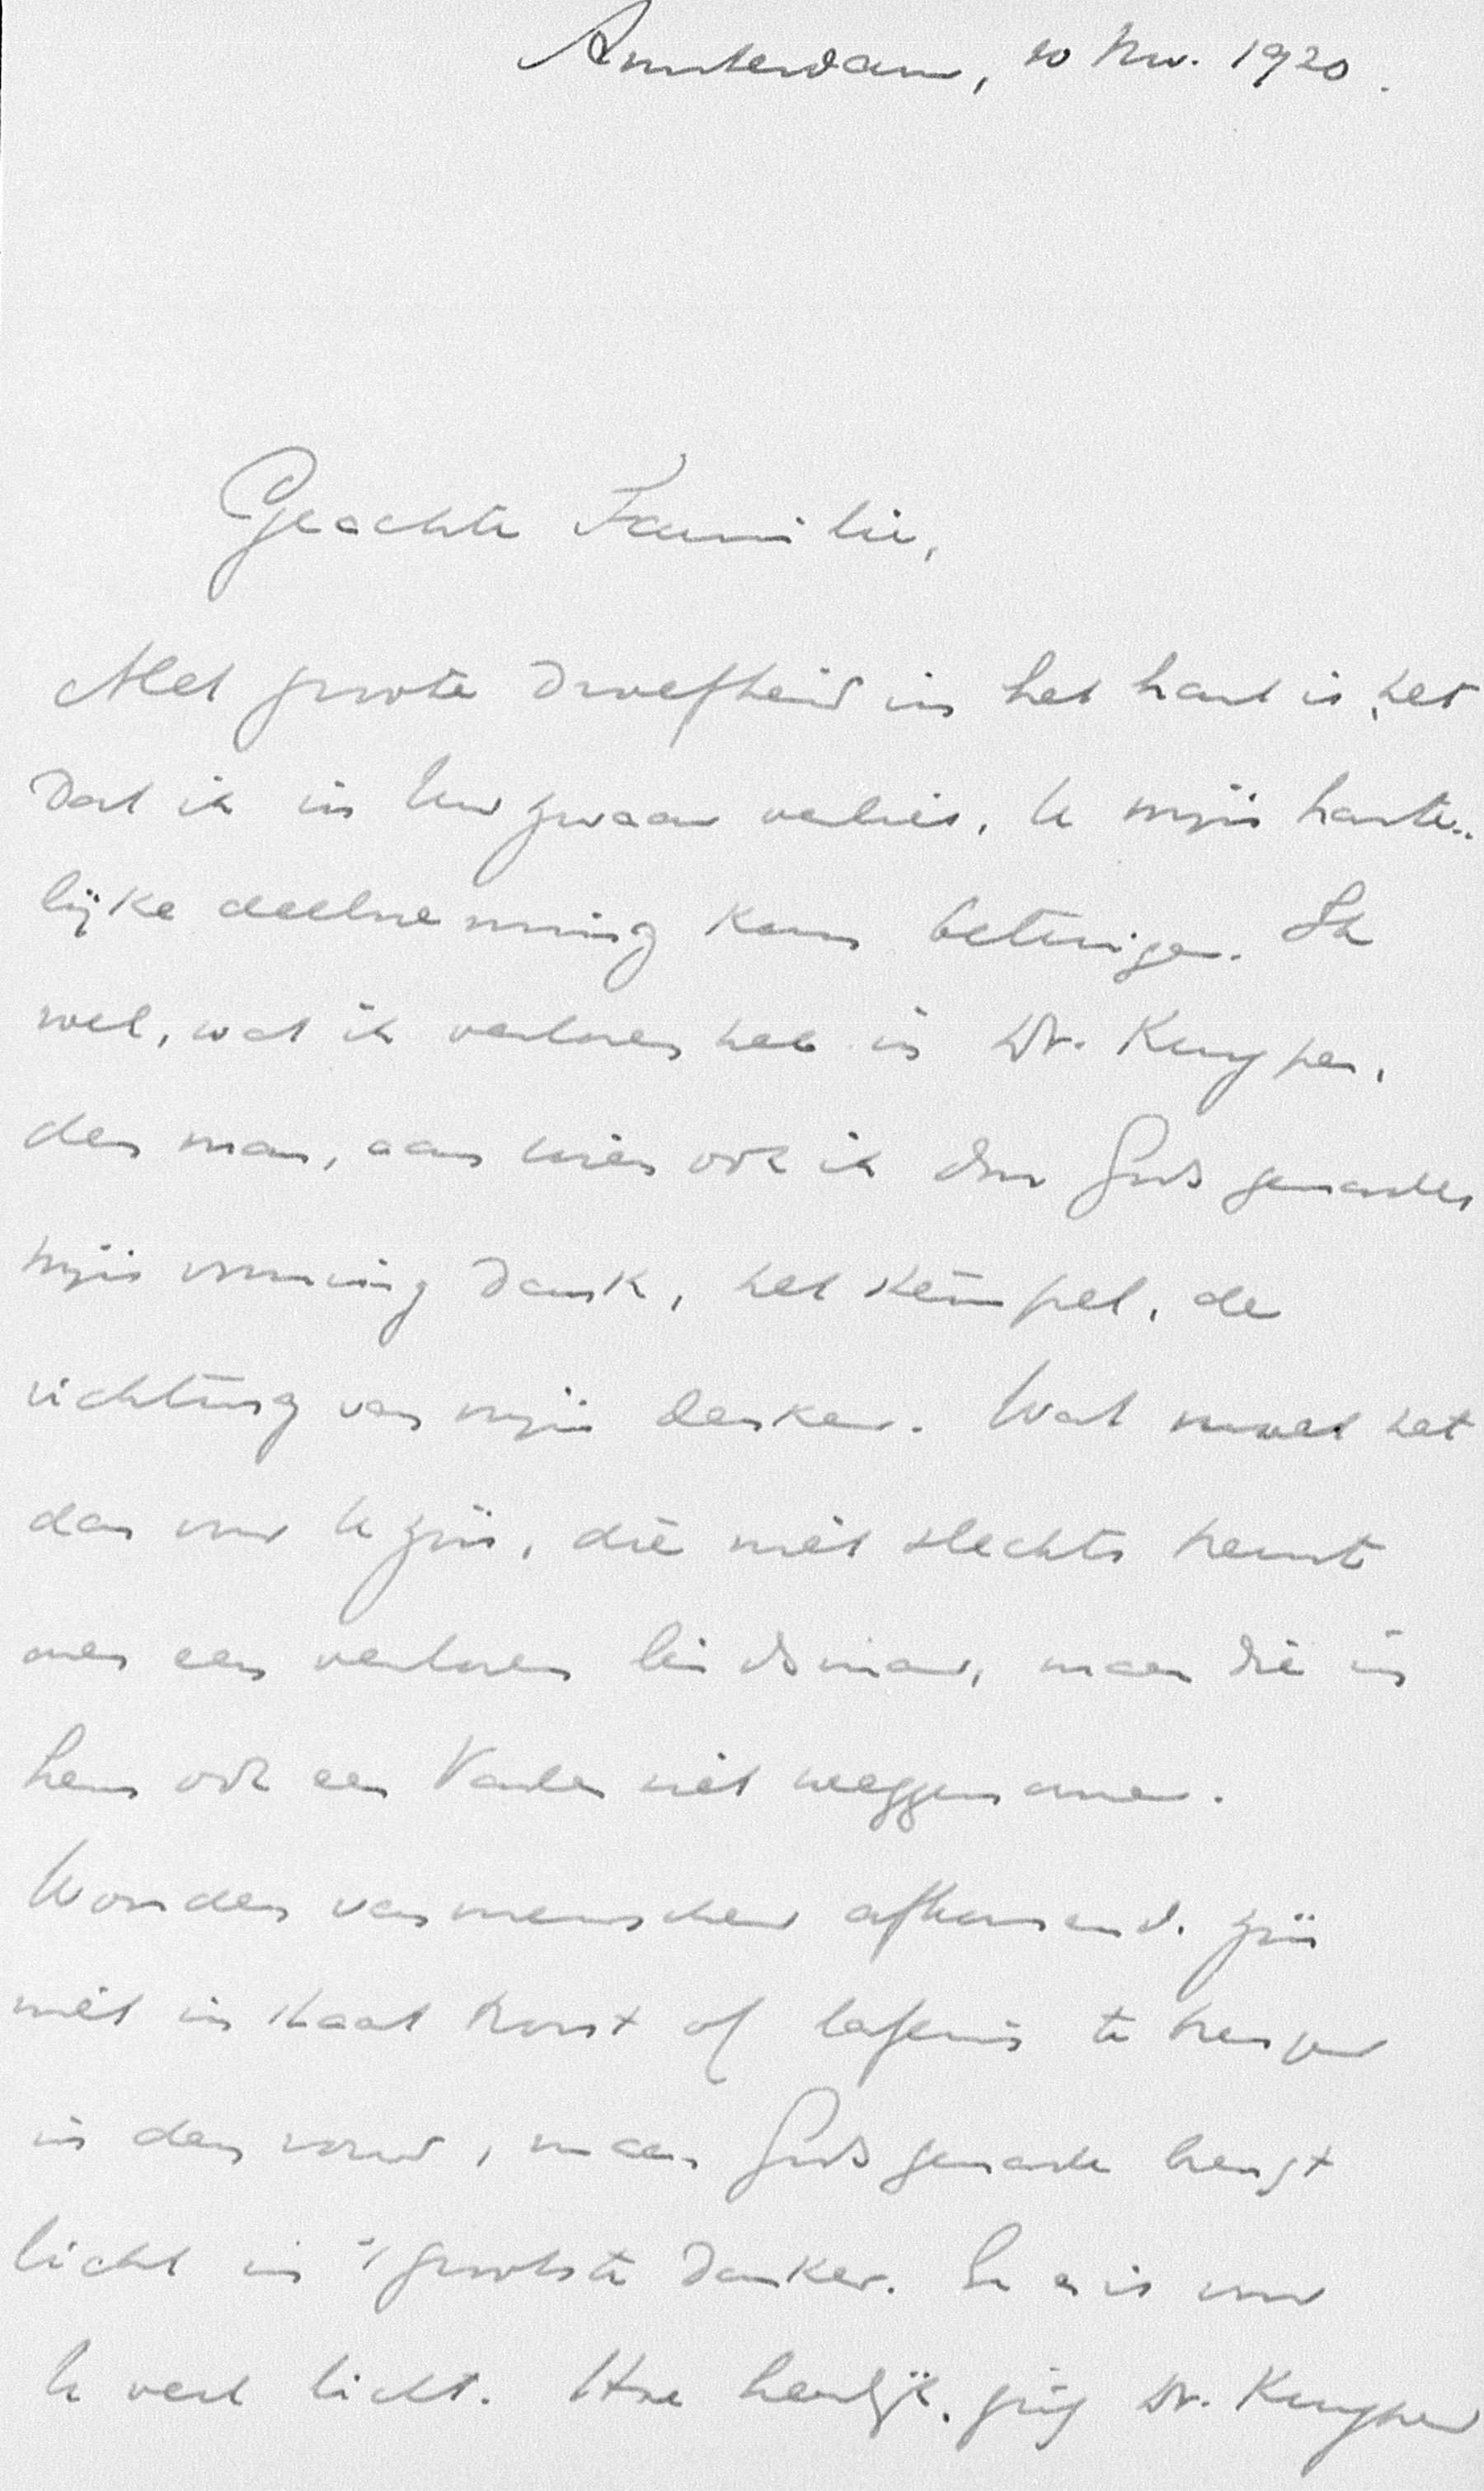 Amsterdam, 10 Nov. 1920.
Geachte Familie,
Met groote droefheid in het hart is het
dat ik in Uw zwaar verlies, U mijn harte-
lijke deelneming kom betuigen. Ik
weet, wat ik verloren heb in Dr. Kuyper,
den man, aan wien ook ik door Gods genade
mijn vorming dank, het stempel, de
richting van mijn denken. Wat moet het
dan voor U zijn, die niet slechts treurt
over een verloren leidsman, maar die in
hem ook een Vader ziet weggenomen.
Woorden van menschen afkomend, zijn
niet in staat troost of lafenis te brengen
in den rouw, maar Gods genade brengt
licht in 't grootste donker. En er is voor
U veel licht. Hoe heerlijk, ging Dr. Kuyper